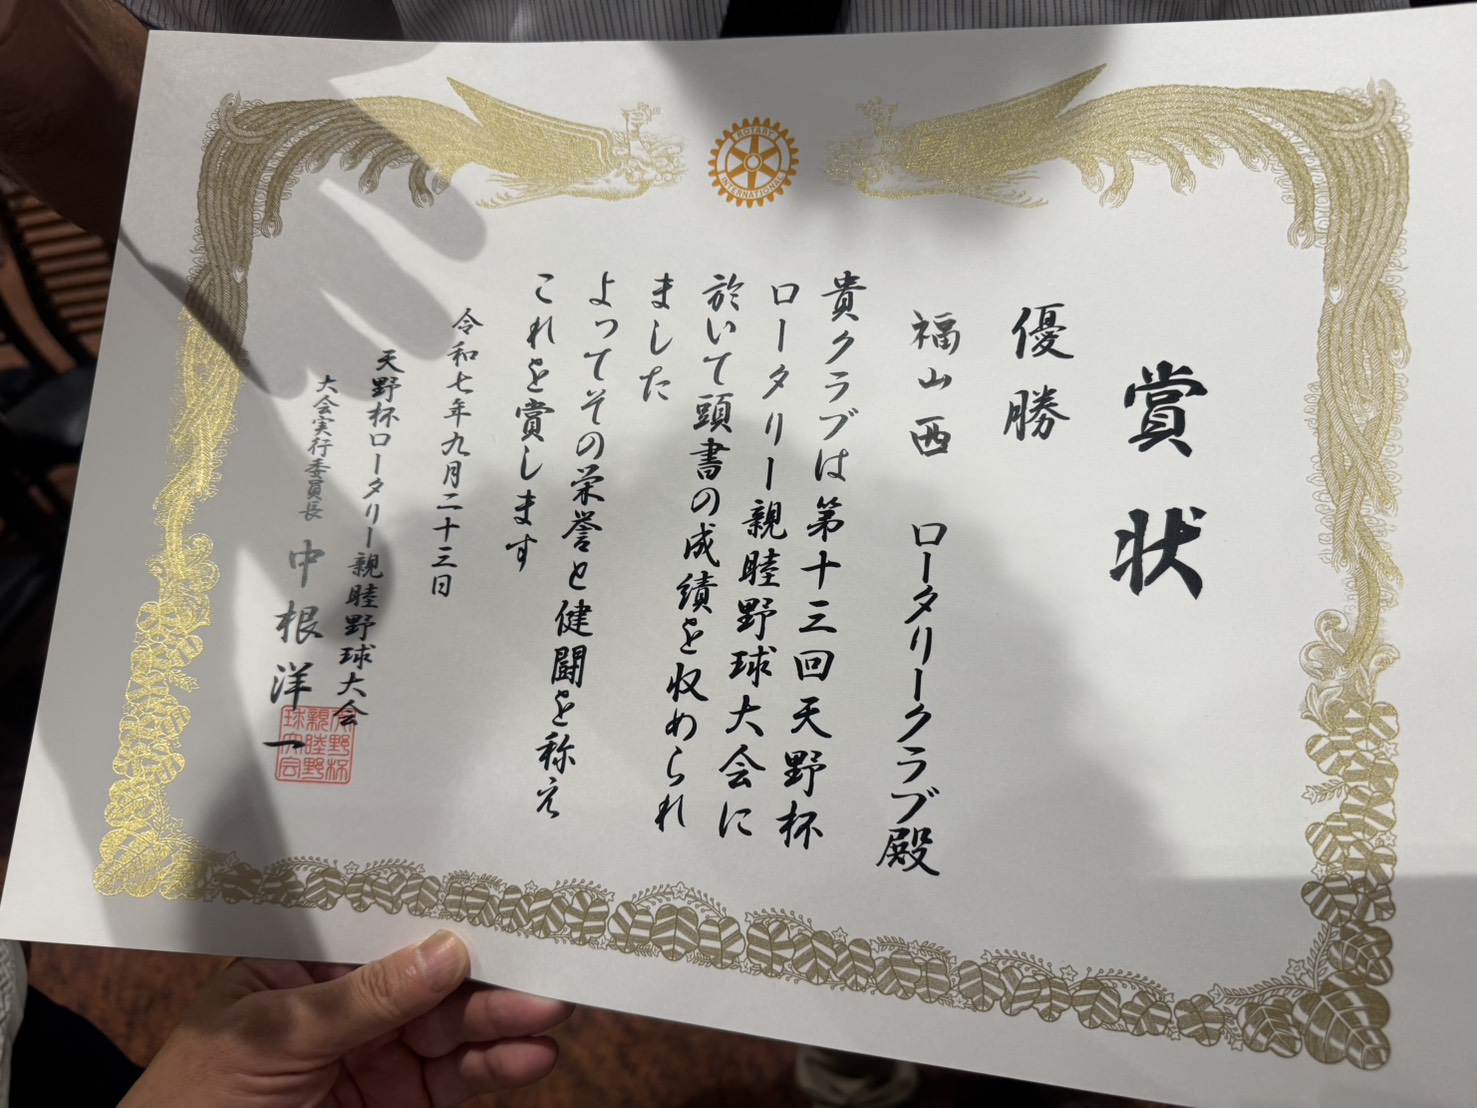 ROTARY
INTERNATIONAL
賞状
優勝
福山西 ロータリークラブ殿
貴クラブは第十三回天野杯
ロータリー親睦野球大会に
於いて頭書の成績を収められ
ました
よってその栄誉と健闘を称え
これを賞します
令和七年九月二十三日
天野杯ロータリー親睦野球大会
大会実行委員長 中根洋一
天野杯
親睦野
球大会